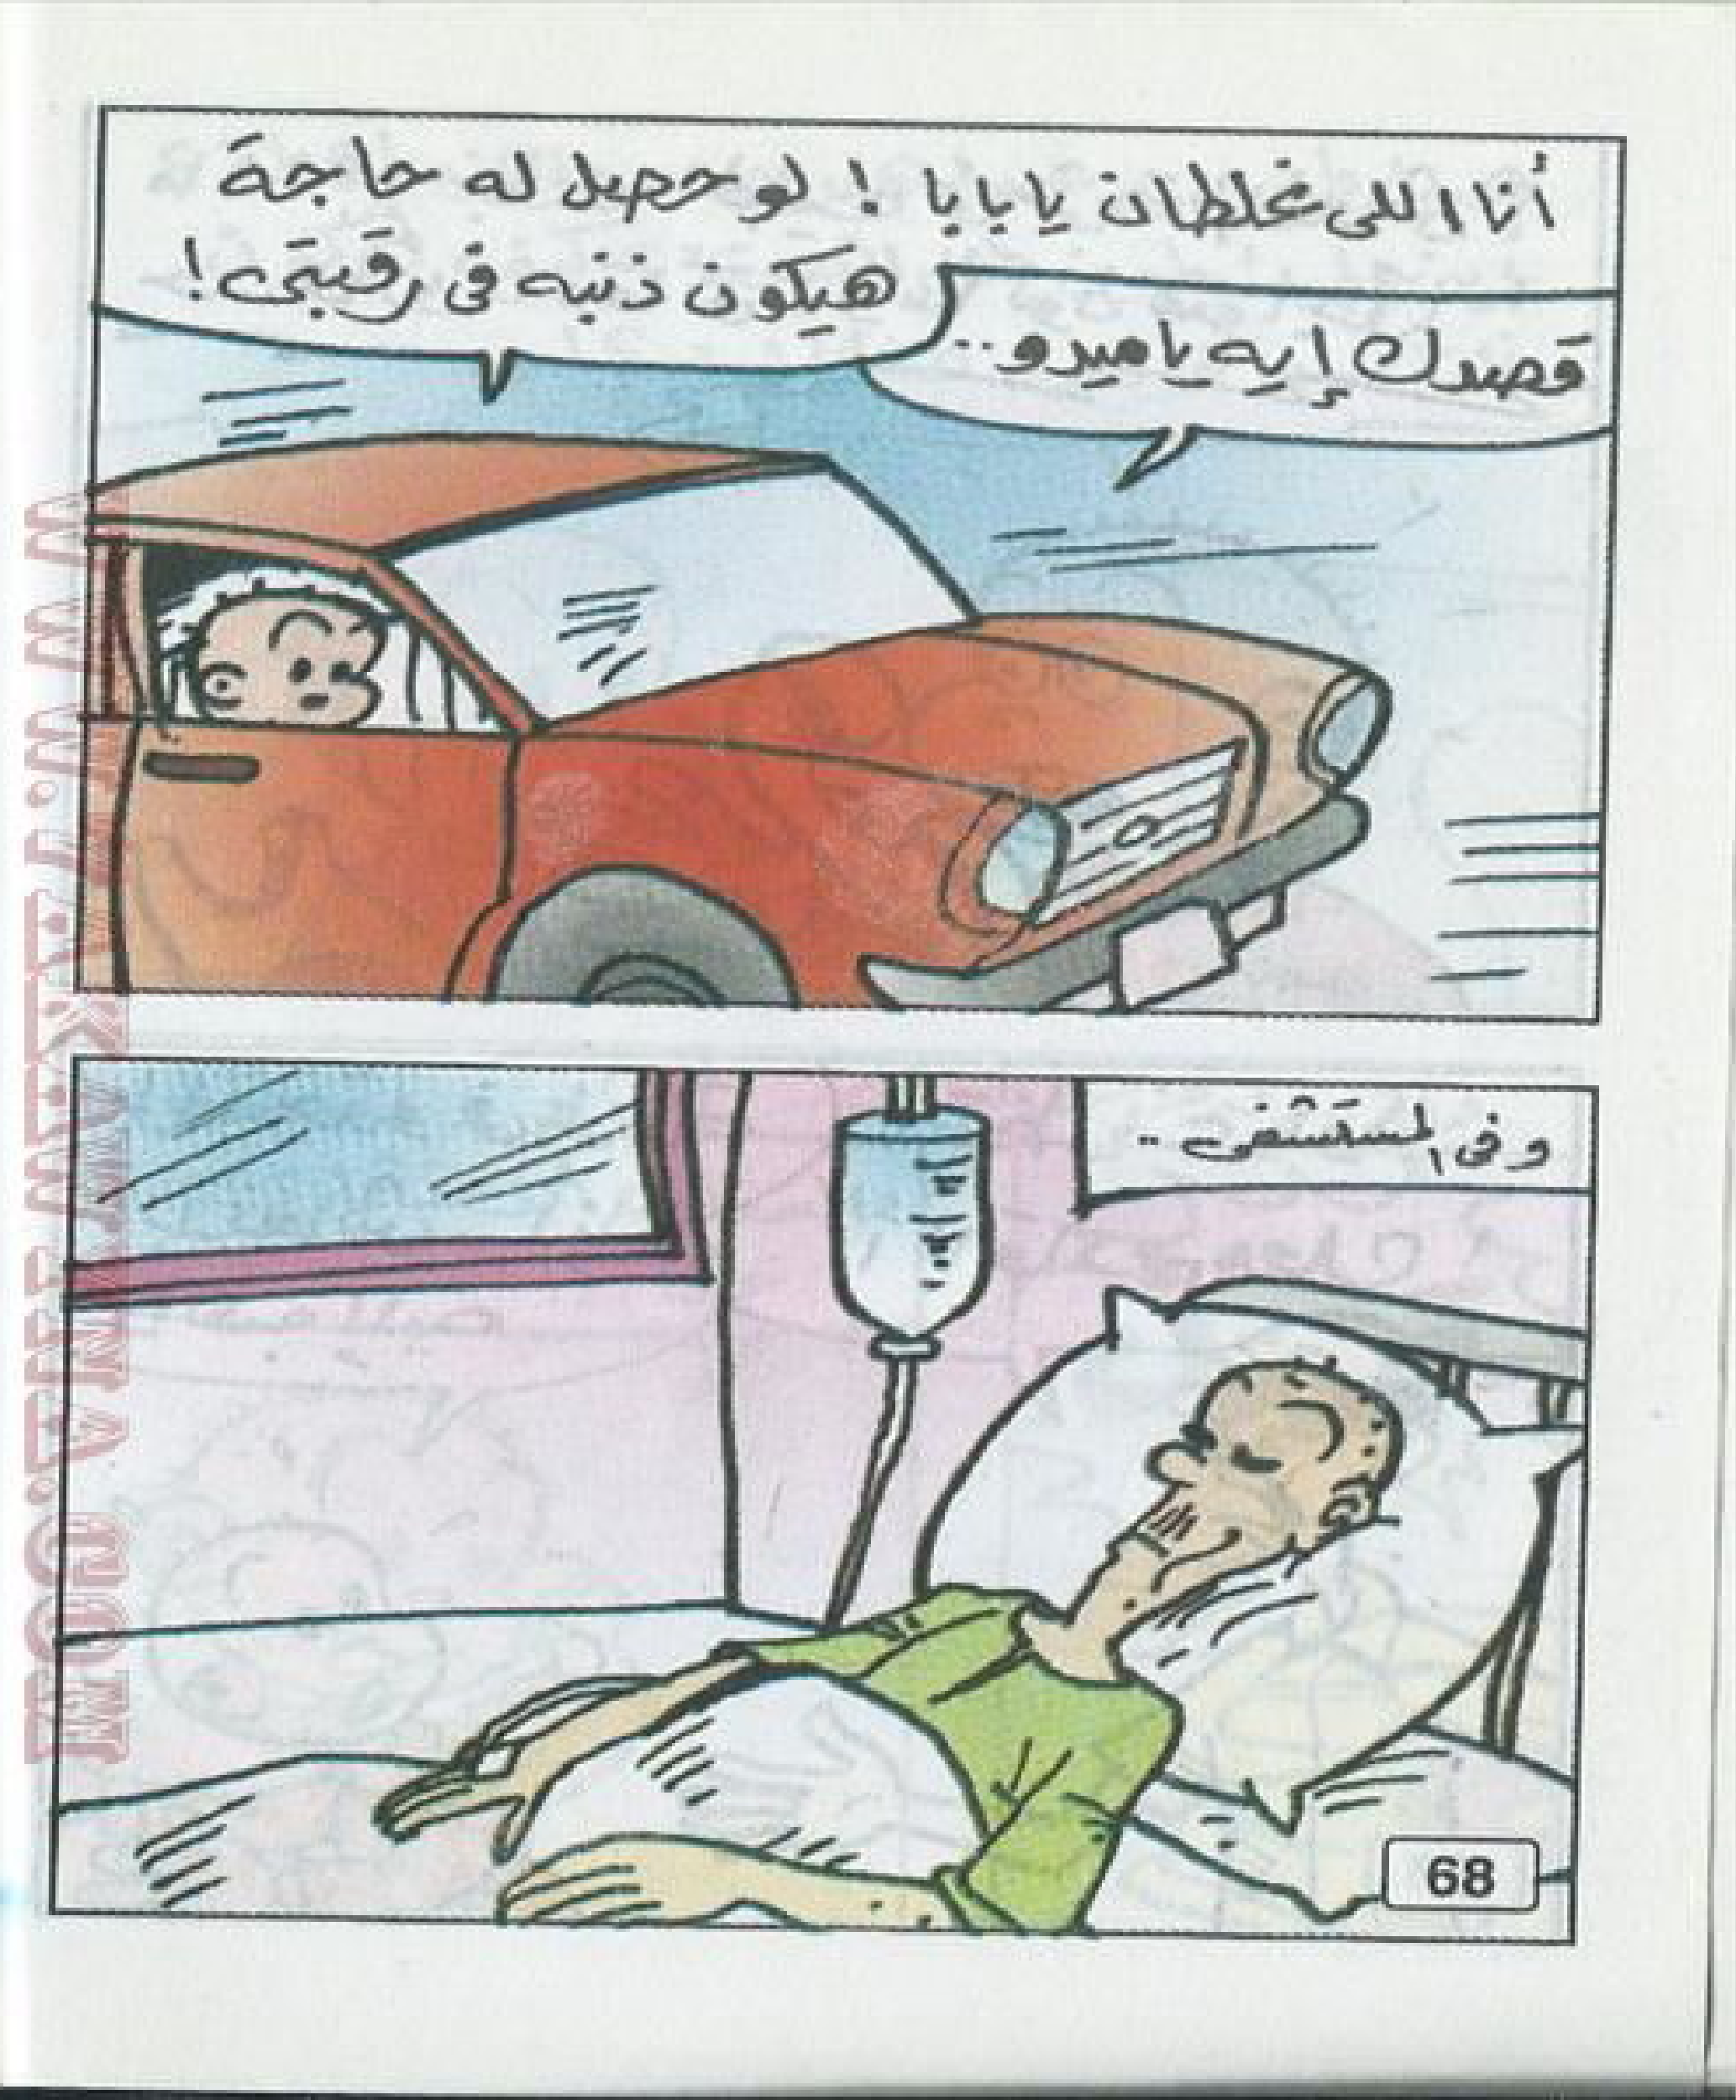 أنا اللى غلطان يا بابا ! لو حصل له حاجة
هيكون ذنبه فى رقبتى !
قصدك إيه يا ميدو ..
وفى المستشفى ..
68